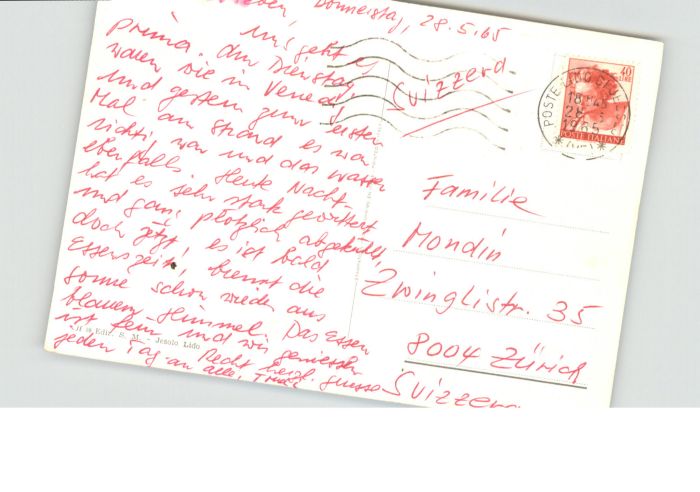 Donnerstag, 28.5.65
Uns geht es
prima. Am Dienstag
waren wir in Venedig
und gestern zum ersten
Mal am Strand es war
richtig warm und das Wasser
ebenfalls. Heute Nacht
hat es sehr stark gewittert
und ganz plötzlich abgekühlt,
doch jetzt, es ist bald
Essenszeit, brennt die
Sonne schon wieder aus
blauem Himmel. Das Essen
ist fein und wir geniessen
jeden Tag
Recht herzl. Grüsse
an alle,
H Edit. S. M. - Jesolo Lido
Svizzera
40
LIRE
POSTE
1965
POSTE ITALIANE
Familie
Mondin
Zwinglistr. 35
8004 Zürich
Svizzera